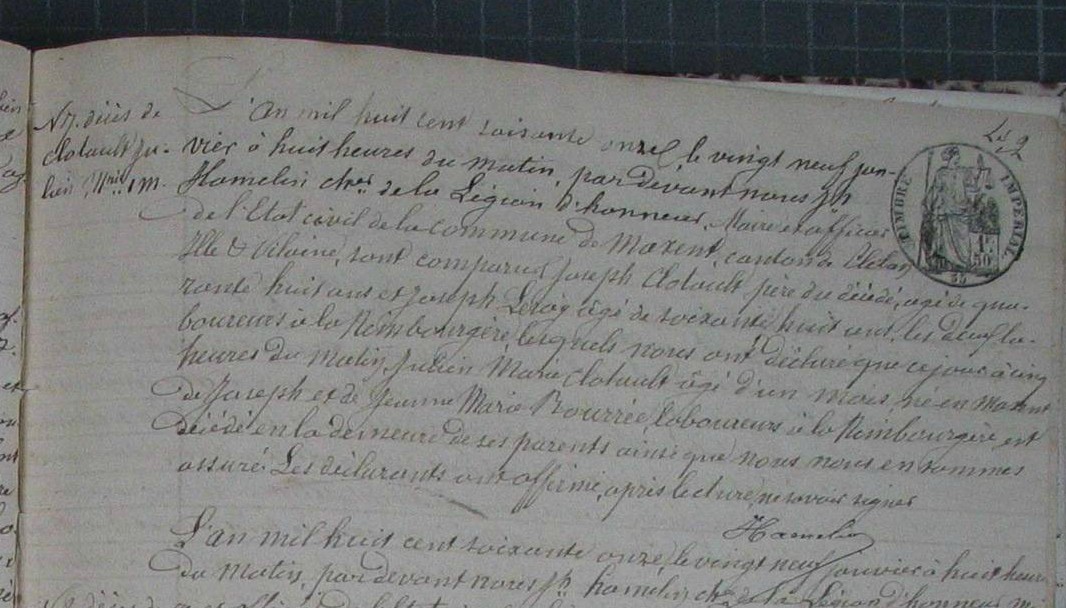 N 7. décès de
Clotault Ju-
lien Mrie 1 m.
L'an mil huit cent soixante onze, le vingt neuf jan-
vier à huit heures du matin, par devant nous Jh
Hamelin chev. de la Légion d'honneur, Maire et officier
de l'Etat civil de la Commune de Maxent, canton de Plélan
Ille & Vilaine, sont comparus Joseph Clotault père du décédé, agé de qua-
rante huit ans et Joseph Leray âgé de soixante huit ans, les deux la-
boureurs à la Rembourgère, lesquels nous ont déclaré que ce jour à cinq
heures du Matin, Julien Marie Clotault âgé d'un mois, né en Maxent
de Joseph et de Jeanne Marie Bourrée laboureurs à la Rembourgère, est
décédé en la demeure de ses parents ainsi que nous nous en sommes
assuré. Les déclarants ont affirmé, après lecture, ne savoir signer
Hamelin
L'an mil huit cent soixante onze, le vingt neuf janvier à huit heures
du Matin, par devant nous Jh hamelin chev de la Légion d'honneur, m
TIMBRE IMPÉRIAL
1F
50